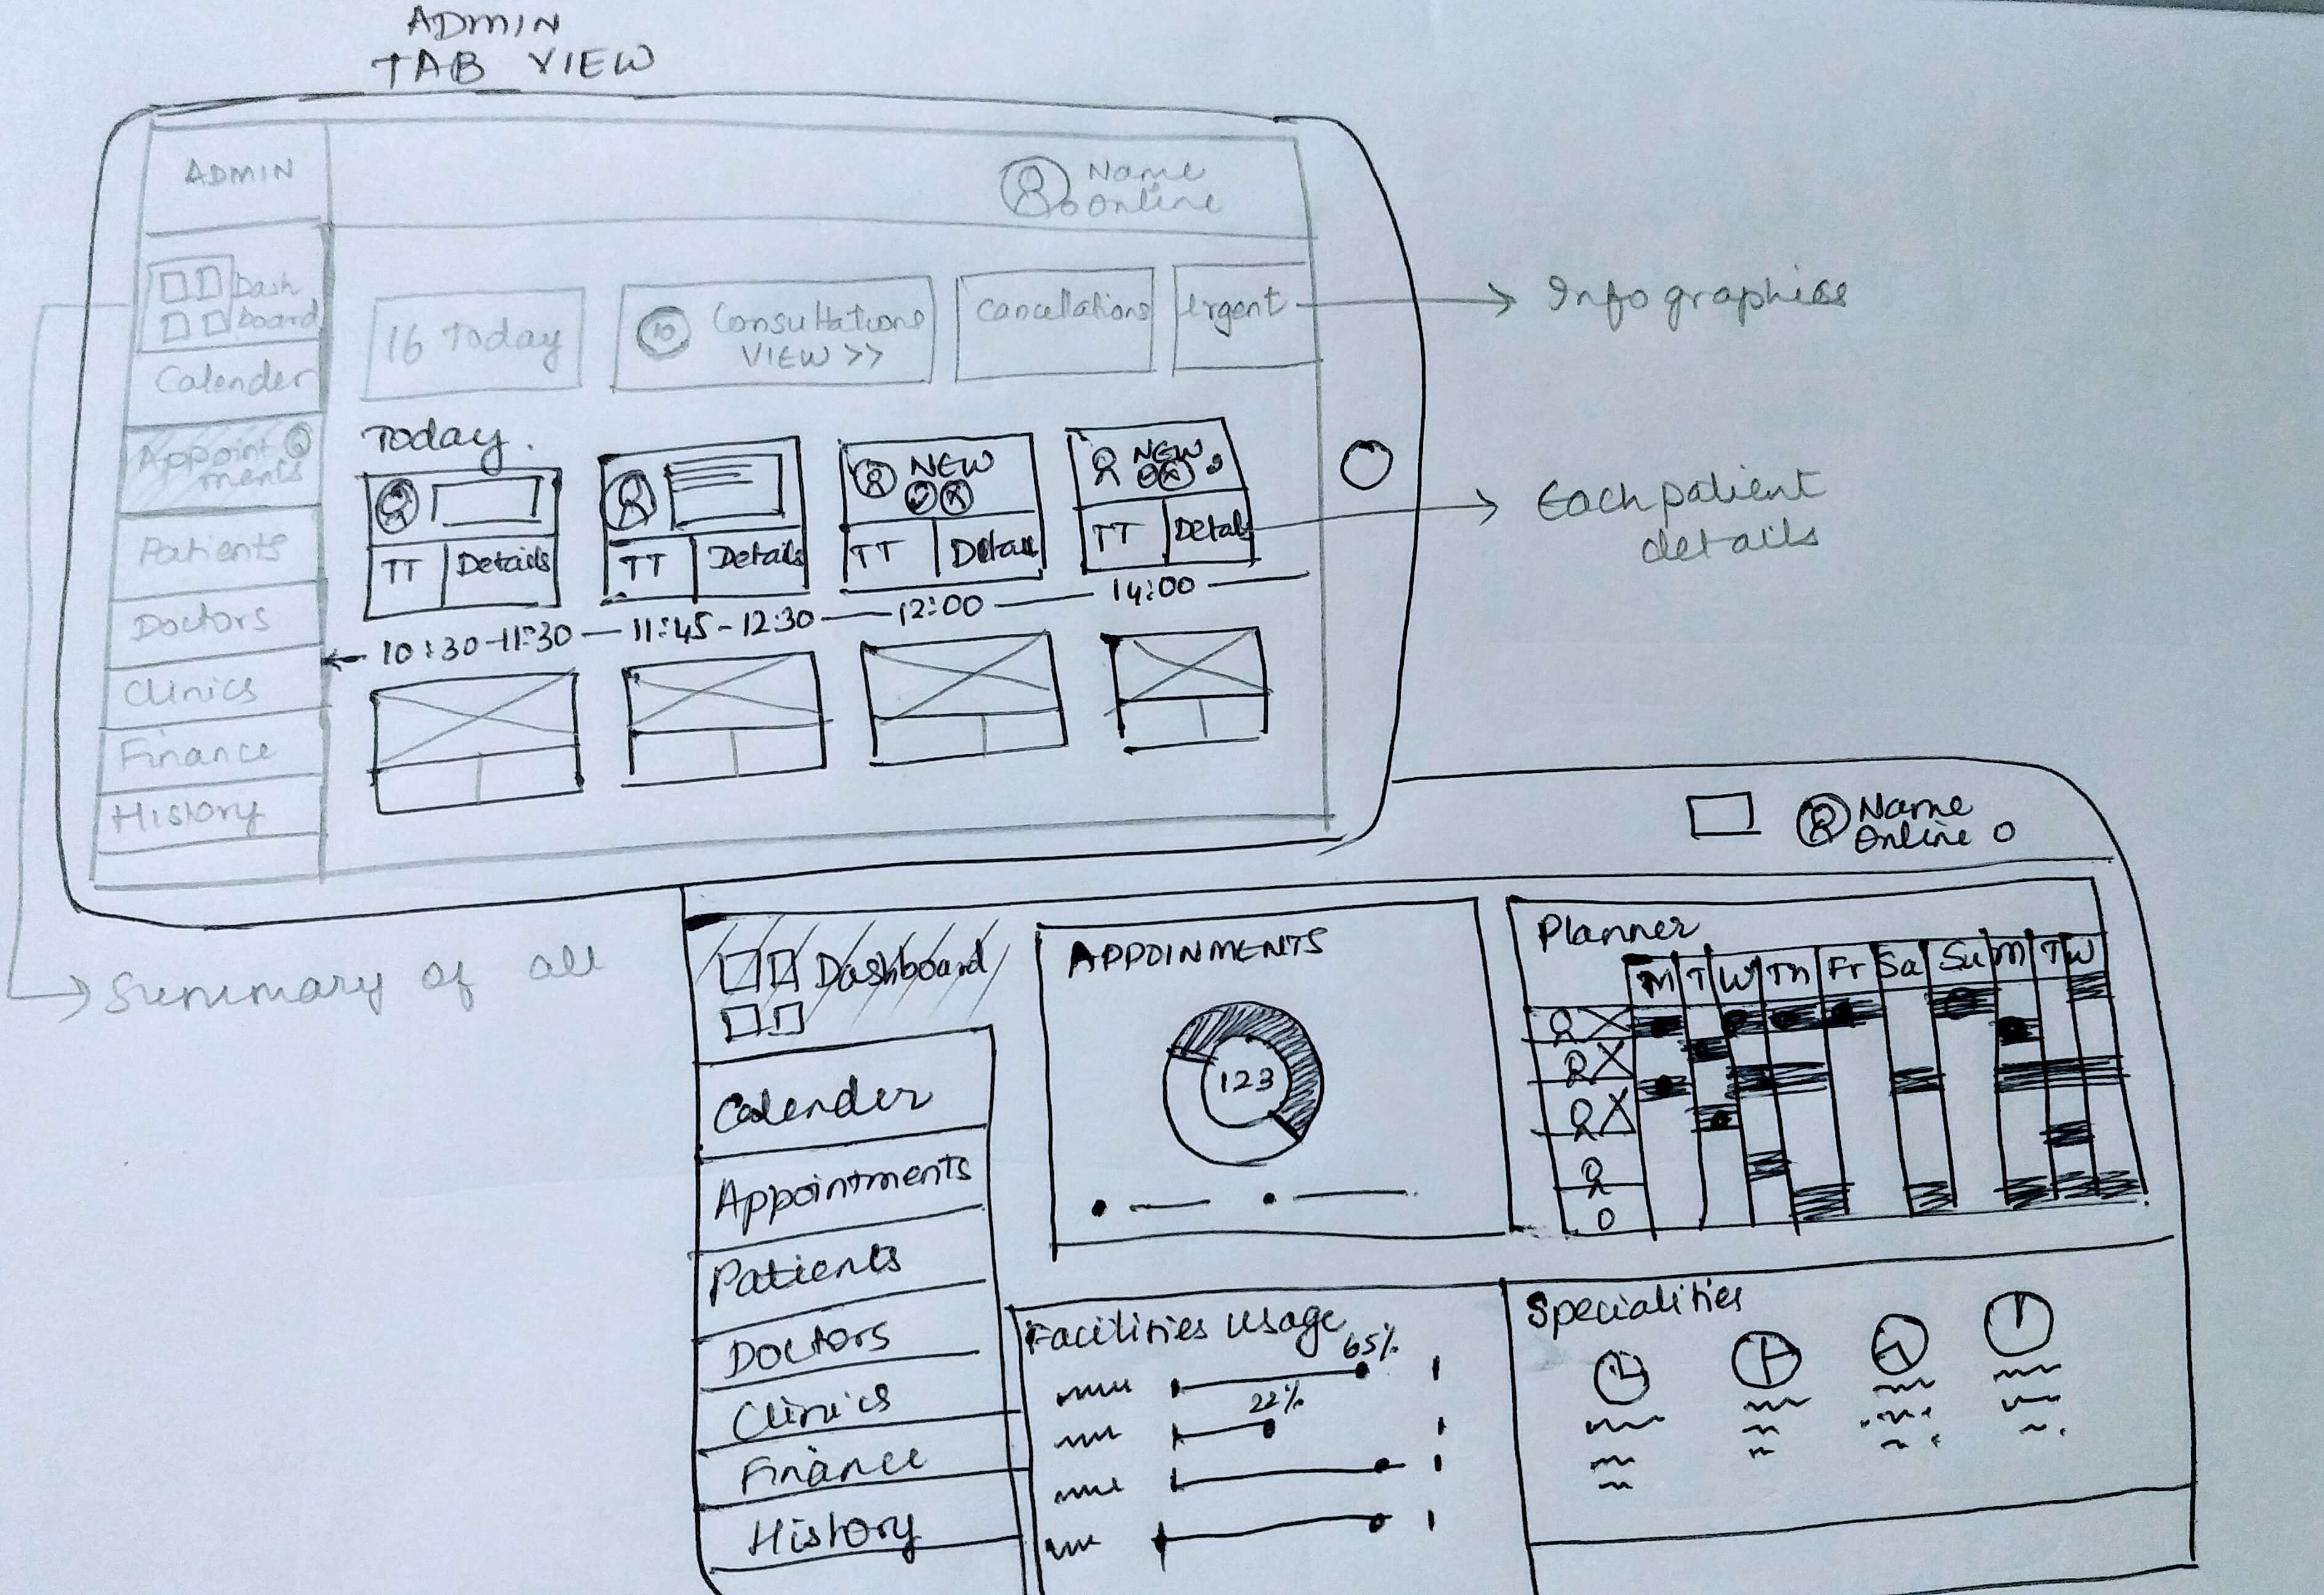 ADMIN
TAB VIEW
ADMIN
Name
Online
Dash
board
Calender
Appoint
ments
Patients
Doctors
Clinics
Finance
History
16 Today
10 Consultations
VIEW >>
Cancellations
Urgent
Infographics
Today.
NEW
NEW
TT Details
TT Details
TT
TT Details
Each patient
details
10:30-11:30 — 11:45-12:30 — 12:00 — 14:00
Summary of all
Name
Online
Dashboard
Calender
Appointments
Patients
Doctors
Clinics
Finance
History
APPOINMENTS
123
Planner
M T W Th Fr Sa Su M T W
Facilities Usage
65%
22%
Specialities